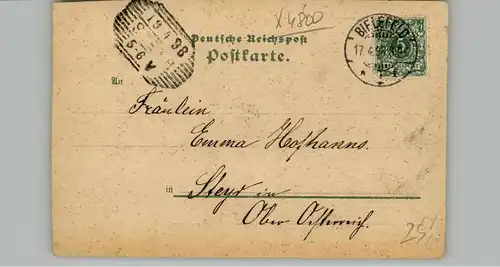 X 4800
Deutsche Reichspost
Postkarte.
BIELEFELD
17 4 98
19 4 98
5-6 A
An
Fräulein
Emma Hofhanns.
in
Steyr in
Ober Österreich.
25,-